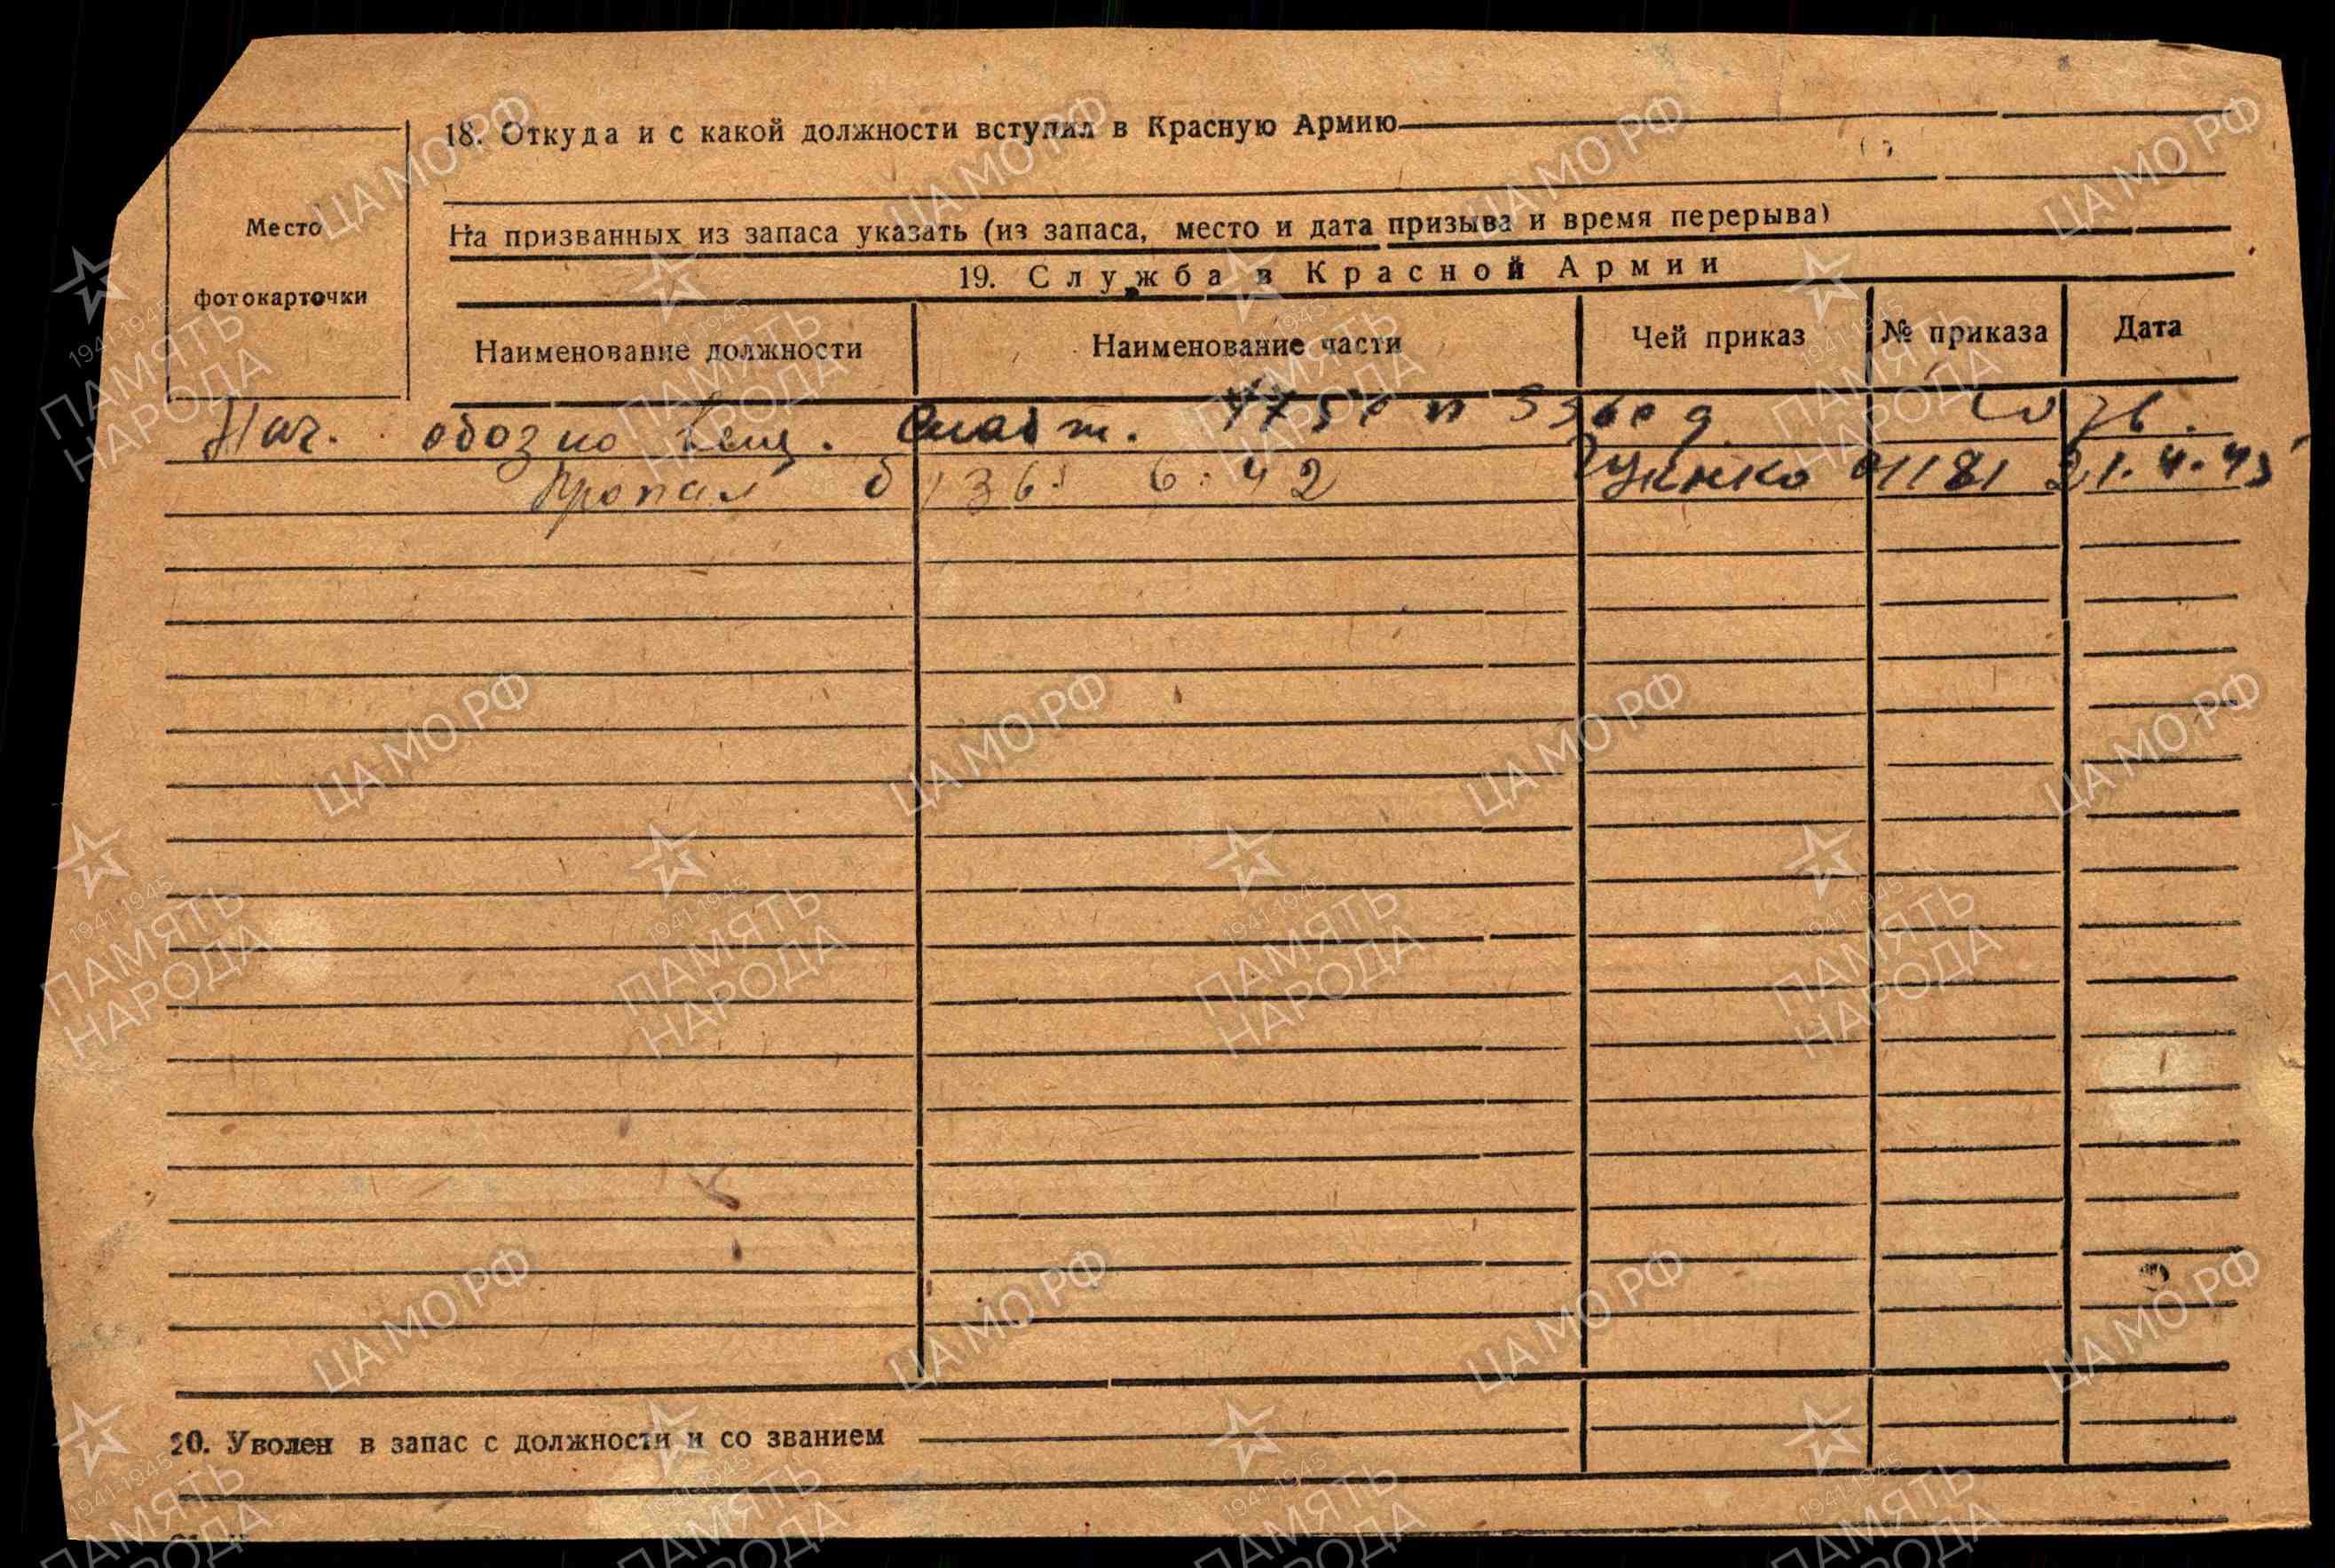 18. Откуда и с какой должности вступил в Красную Армию
Место
фотокарточки
На призванных из запаса указать (из запаса, место и дата призыва и время перерыва)
19. Служба в Красной Армии
Наименование должности
Наименование части
Чей приказ
№ приказа
Дата
Нач. обозно вещ. снабж.
Пропал б/в 6.42
Гукнко 01181 21.4.45
20. Уволен в запас с должности и со званием
ЦАМО РФ
1941-1945
ПАМЯТЬ
НАРОДА